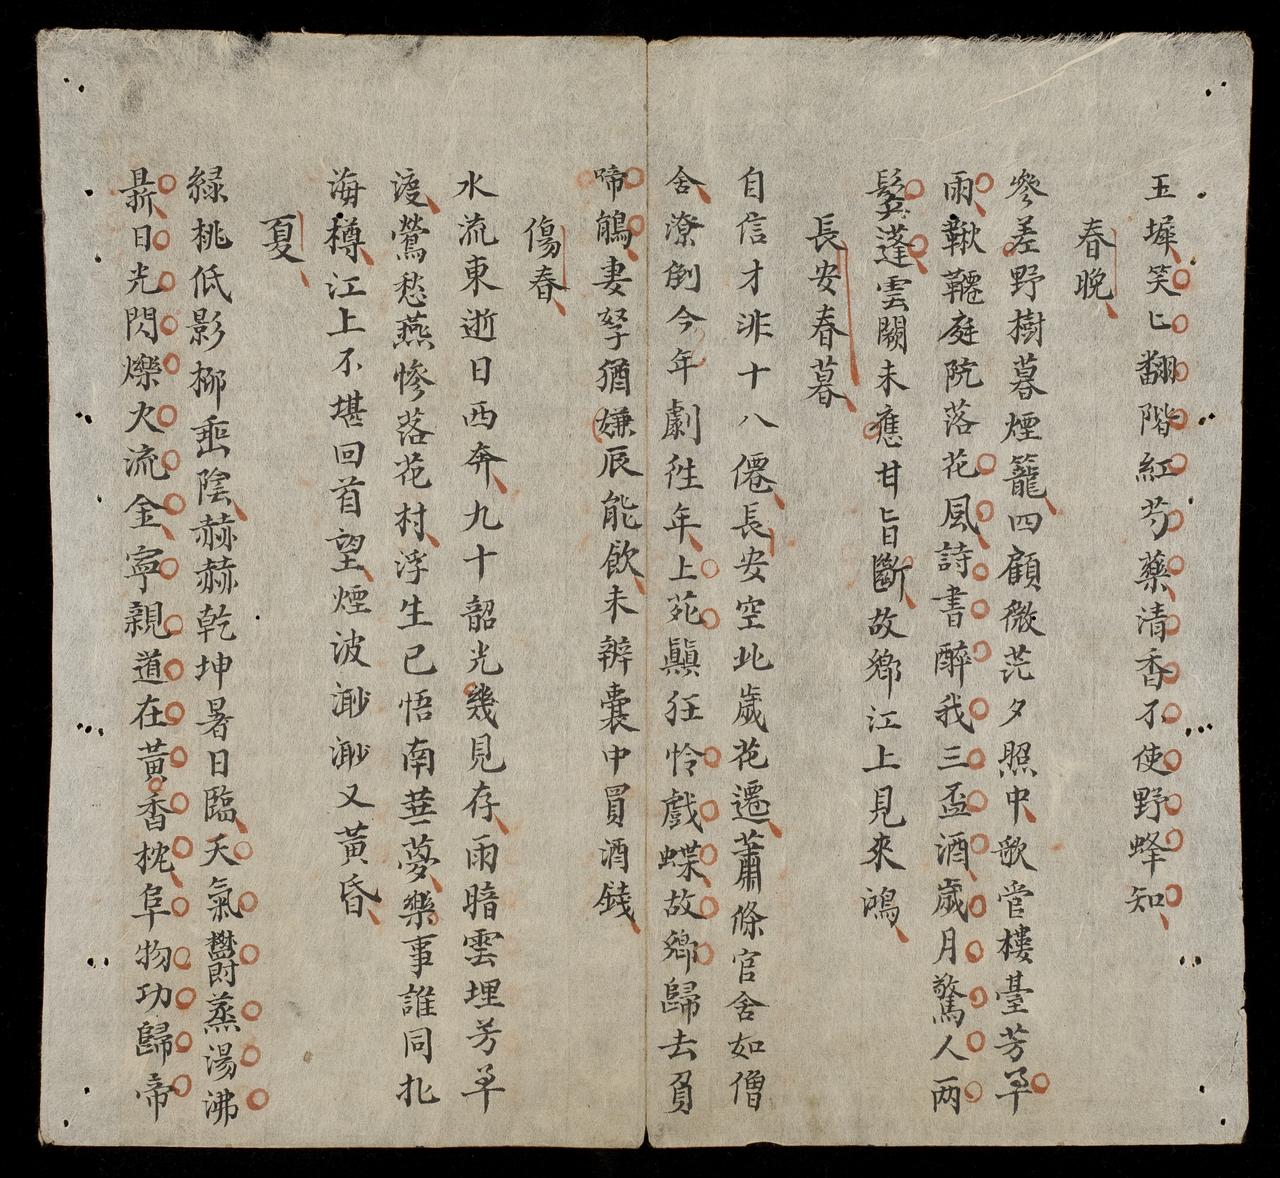 玉墀笑匕翻階紅芍藥清香不使野蜂知
春晚
參差野樹暮煙籠四顧微茫夕照中歌管樓臺芳草
雨鞦韆庭院落花風詩書醉我三盃酒歲月驚人兩
鬂蓬雲闕未應甘旨斷故鄉江上見來鴻
長安春暮
自信才非十八僊長安空北歲花遷蕭條官舍如僧
舍潦倒今年劇徃年上苑顛狂怜戲蝶故鄉歸去負
啼鵑妻孥猶嫌辰能飲未辨囊中買酒錢
傷春
水流東逝日西奔九十韶光幾見存雨暗雲埋芳草
渡鶯愁燕慘落花村浮生已悟南華夢樂事誰同北
海樽江上不堪回首望煙波渺渺又黃昏
夏
綠桃低影柳垂陰赫赫乾坤暑日臨天氣欎蒸湯沸
鼎日光閃爍火流金寧親道在黃香枕阜物功歸帝